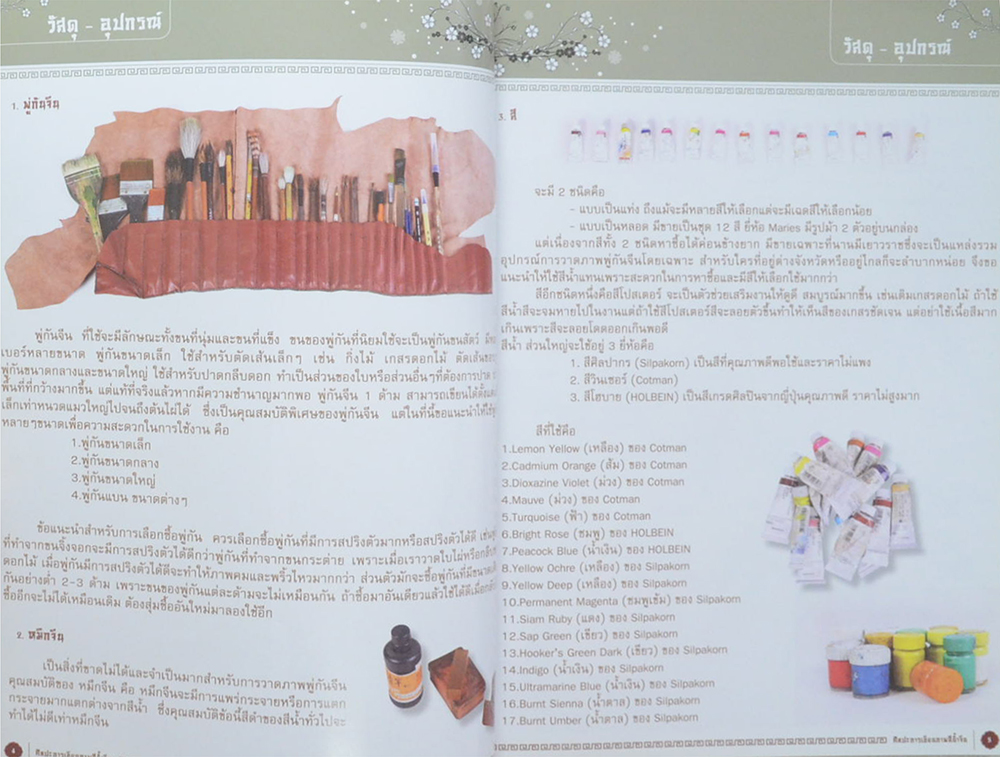 วัสดุ - อุปกรณ์
1. พู่กันจีน
พู่กันจีน ที่ใช้จะมีลักษณะทั้งขนที่นุ่มและขนที่แข็ง ขนของพู่กันที่นิยมใช้จะเป็นพู่กันขนสัตว์
เบอร์หลายขนาด พู่กันขนาดเล็ก ใช้สำหรับตัดเส้นเล็กๆ เช่น กิ่งไม้ เกสรดอกไม้ ตัดเส้นขอบ
พู่กันขนาดกลางและขนาดใหญ่ ใช้สำหรับปาดกลีบดอก ทำเป็นส่วนของใบหรือส่วนอื่นๆที่ต้องการปาด
พื้นที่ที่กว้างมากขึ้น แต่แท้ที่จริงแล้วหากมีความชำนาญมากพอ พู่กันจีน 1 ด้าม สามารถเขียนได้ตั้งแต่
เล็กเท่าหนวดแมวใหญ่ไปจนถึงต้นไผ่ได้ ซึ่งเป็นคุณสมบัติพิเศษของพู่กันจีน แต่ในที่นี้ขอแนะนำให้ใช้
หลายๆขนาดเพื่อความสะดวกในการใช้งาน คือ
1.พู่กันขนาดเล็ก
2.พู่กันขนาดกลาง
3.พู่กันขนาดใหญ่
4.พู่กันแบน ขนาดต่างๆ
ข้อแนะนำสำหรับการเลือกซื้อพู่กัน ควรเลือกซื้อพู่กันที่มีการสปริงตัวมากหรือสปริงตัวได้ดี เช่น
ที่ทำจากขนจิ้งจอกจะมีการสปริงตัวได้ดีกว่าพู่กันที่ทำจากขนกระต่าย เพราะเมื่อเราวาดใบไผ่หรือกลีบ
ดอกไม้ เมื่อพู่กันมีการสปริงตัวได้ดีจะทำให้ภาพคมและพริ้วไหวมากกว่า ส่วนตัวมักจะซื้อพู่กันที่มีขนาด
กันอย่างต่ำ 2-3 ด้าม เพราะขนของพู่กันแต่ละด้ามจะไม่เหมือนกัน ถ้าซื้อมาอันเดียวแล้วใช้ได้ดีเมื่อกลับ
ซื้ออีกจะไม่ได้เหมือนเดิม ต้องสุ่มซื้ออันใหม่มาลองใช้อีก
2. หมึกจีน
เป็นสิ่งที่ขาดไม่ได้และจำเป็นมากสำหรับการวาดภาพพู่กันจีน
คุณสมบัติของ หมึกจีน คือ หมึกจีนจะมีการแพร่กระจายหรือการแตก
กระจายมากแตกต่างจากสีน้ำ ซึ่งคุณสมบัติข้อนี้สีดำของสีน้ำทั่วไปจะ
ทำได้ไม่ดีเท่าหมึกจีน
4
วัสดุ - อุปกรณ์
3. สี
จะมี 2 ชนิดคือ
- แบบเป็นแท่ง ถึงแม้จะมีหลายสีให้เลือกแต่จะมีเฉดสีให้เลือกน้อย
- แบบเป็นหลอด มีขายเป็นชุด 12 สี ยี่ห้อ Maries มีรูปม้า 2 ตัวอยู่บนกล่อง
แต่เนื่องจากสีทั้ง 2 ชนิดหาซื้อได้ค่อนข้างยาก มีขายเฉพาะที่นานมีเยาวราชซึ่งจะเป็นแหล่งรวม
อุปกรณ์การวาดภาพพู่กันจีนโดยเฉพาะ สำหรับใครที่อยู่ต่างจังหวัดหรืออยู่ไกลก็จะลำบากหน่อย จึงขอ
แนะนำให้ใช้สีน้ำแทนเพราะสะดวกในการหาซื้อและมีสีให้เลือกใช้มากกว่า
สีอีกชนิดหนึ่งคือสีโปสเตอร์ จะเป็นตัวช่วยเสริมงานให้ดูดี สมบูรณ์มากขึ้น เช่นเติมเกสรดอกไม้ ถ้าใช้
สีน้ำสีจะจมหายไปในงานแต่ถ้าใช้สีโปสเตอร์สีจะลอยตัวขึ้นทำให้เห็นสีของเกสรชัดเจน แต่อย่าใช้เนื้อสีมาก
เกินเพราะสีจะลอยโดดออกเกินพอดี
สีน้ำ ส่วนใหญ่จะใช้อยู่ 3 ยี่ห้อคือ
1. สีศิลปากร (Silpakorn) เป็นสีที่คุณภาพดีพอใช้และราคาไม่แพง
2. สีวินเซอร์ (Cotman)
3. สีโฮบาย (HOLBEIN) เป็นสีเกรดศิลปินจากญี่ปุ่นคุณภาพดี ราคาไม่สูงมาก
สีที่ใช้คือ
1.Lemon Yellow (เหลือง) ของ Cotman
2.Cadmium Orange (ส้ม) ของ Cotman
3.Dioxazine Violet (ม่วง) ของ Cotman
4.Mauve (ม่วง) ของ Cotman
5.Turquoise (ฟ้า) ของ Cotman
6.Bright Rose (ชมพู) ของ HOLBEIN
7.Peacock Blue (น้ำเงิน) ของ HOLBEIN
8.Yellow Ochre (เหลือง) ของ Silpakorn
9.Yellow Deep (เหลือง) ของ Silpakorn
10.Permanent Magenta (ชมพูเข้ม) ของ Silpakorn
11.Siam Ruby (แดง) ของ Silpakorn
12.Sap Green (เขียว) ของ Silpakorn
13.Hooker's Green Dark (เขียว) ของ Silpakorn
14.Indigo (น้ำเงิน) ของ Silpakorn
15.Ultramarine Blue (น้ำเงิน) ของ Silpakorn
16.Burnt Sienna (น้ำตาล) ของ Silpakorn
17.Burnt Umber (น้ำตาล) ของ Silpakorn
5